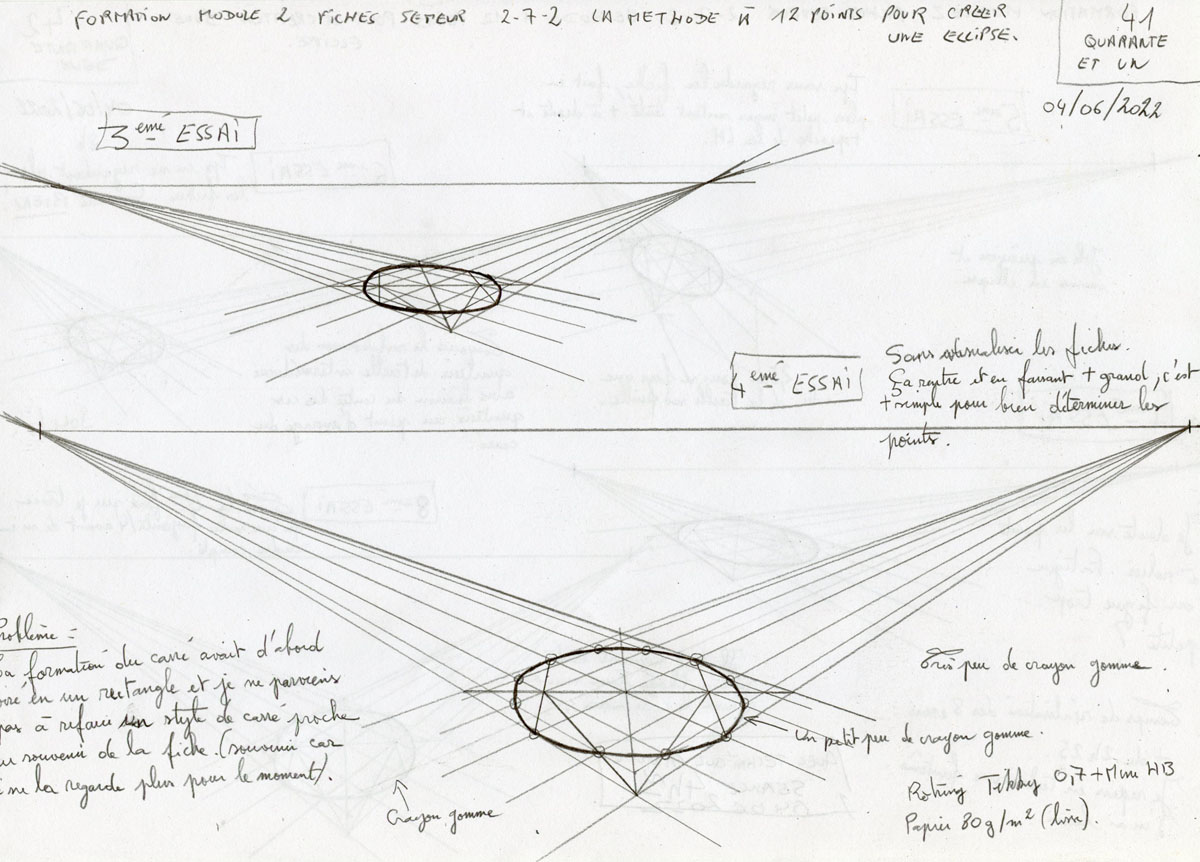 FORMATION MODULE 2 FICHES SEMEUR 2-7-2 LA METHODE À 12 POINTS POUR CREER
UNE ELLIPSE.
41
QUARANTE
ET UN
04/06/2022
3ème ESSAI
4ème ESSAI
Sans les fiches.
Ça rentre et en faisant + grand, c'est
+ simple pour bien déterminer les
points.
Problème =
La formation du carré avait d'abord
viré en un rectangle et je ne parvenais
pas à refaire un style de carré proche
du souvenir de la fiche. (souvenir car
je ne la regarde plus pour le moment).
Crayon gomme
Très peu de crayon gomme.
Un petit peu de crayon gomme.
Rotring Tikky 0,7 + Mine HB
Papier 80g/m² (livre).